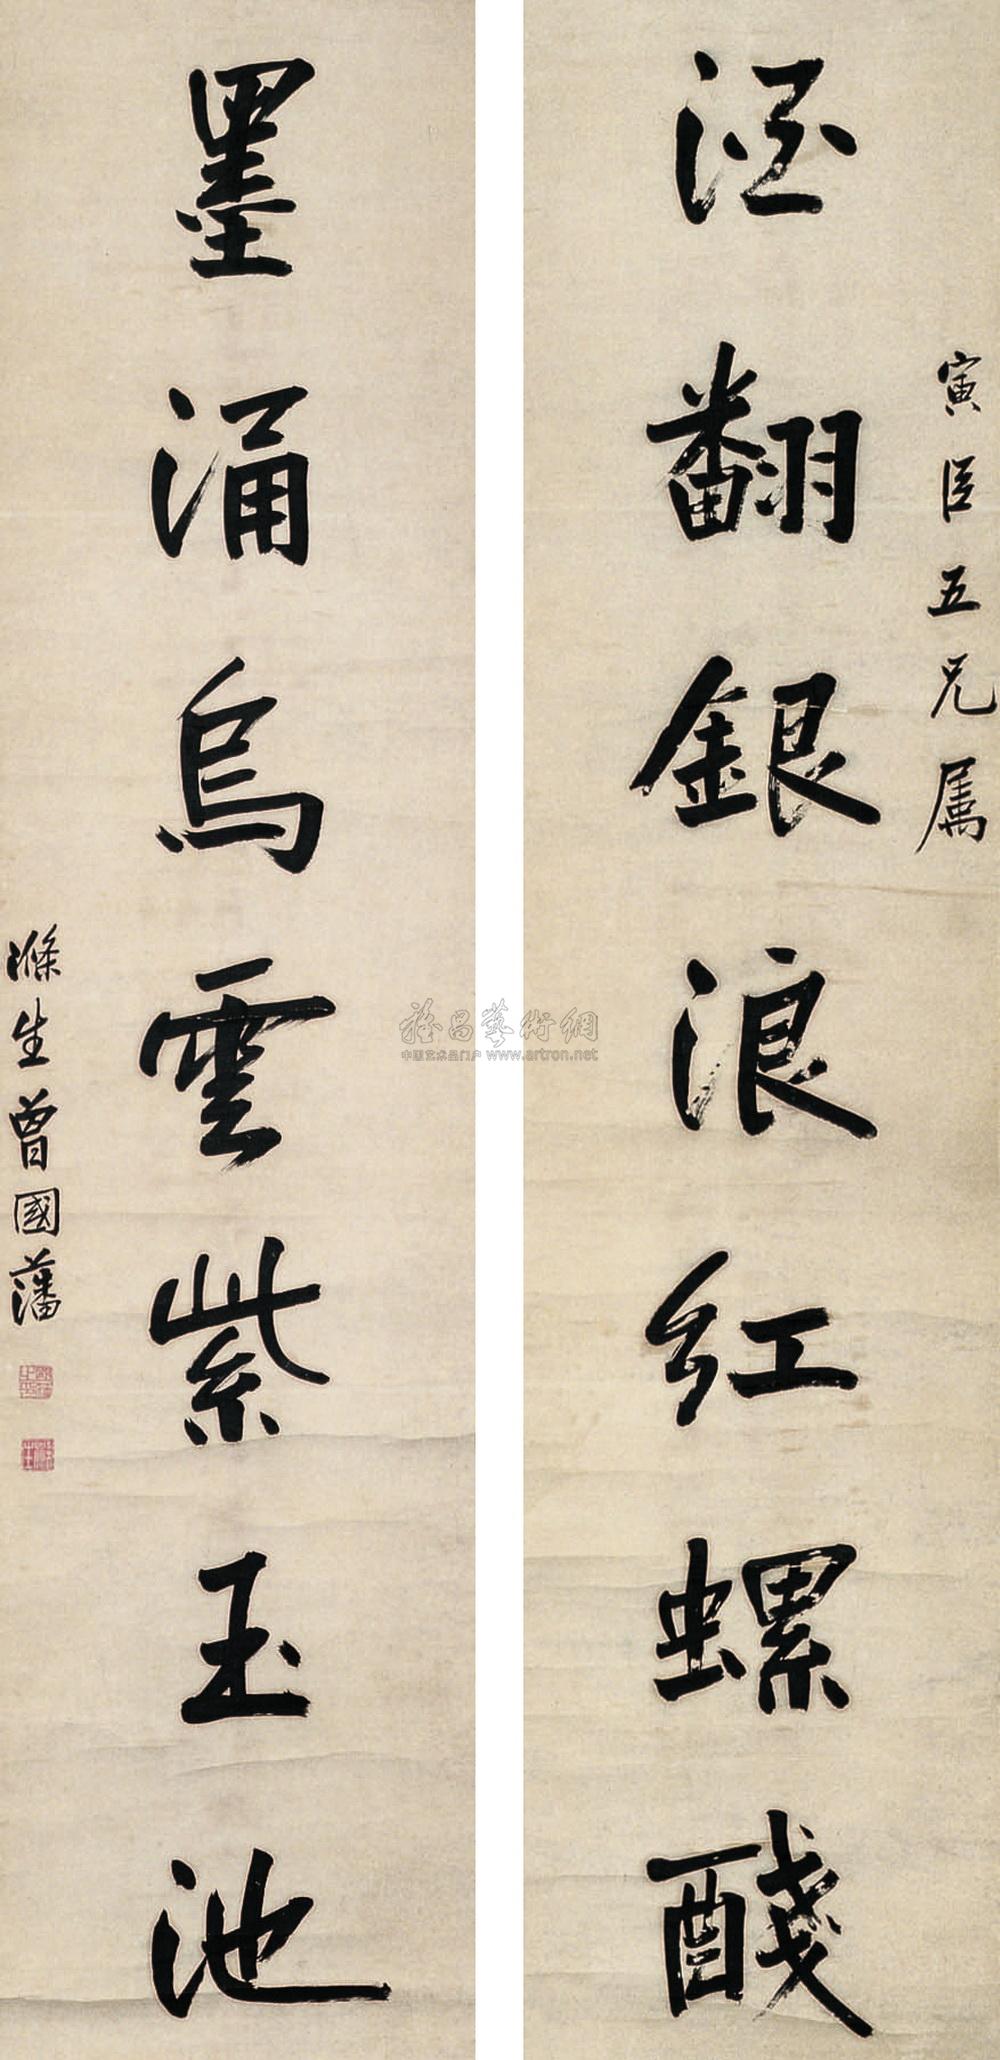 寅臣五兄属
酒翻銀浪紅螺醆
墨涌烏雲紫玉池
滌生曾國藩
雅昌藝術網
中国艺术品门户 www.artron.net